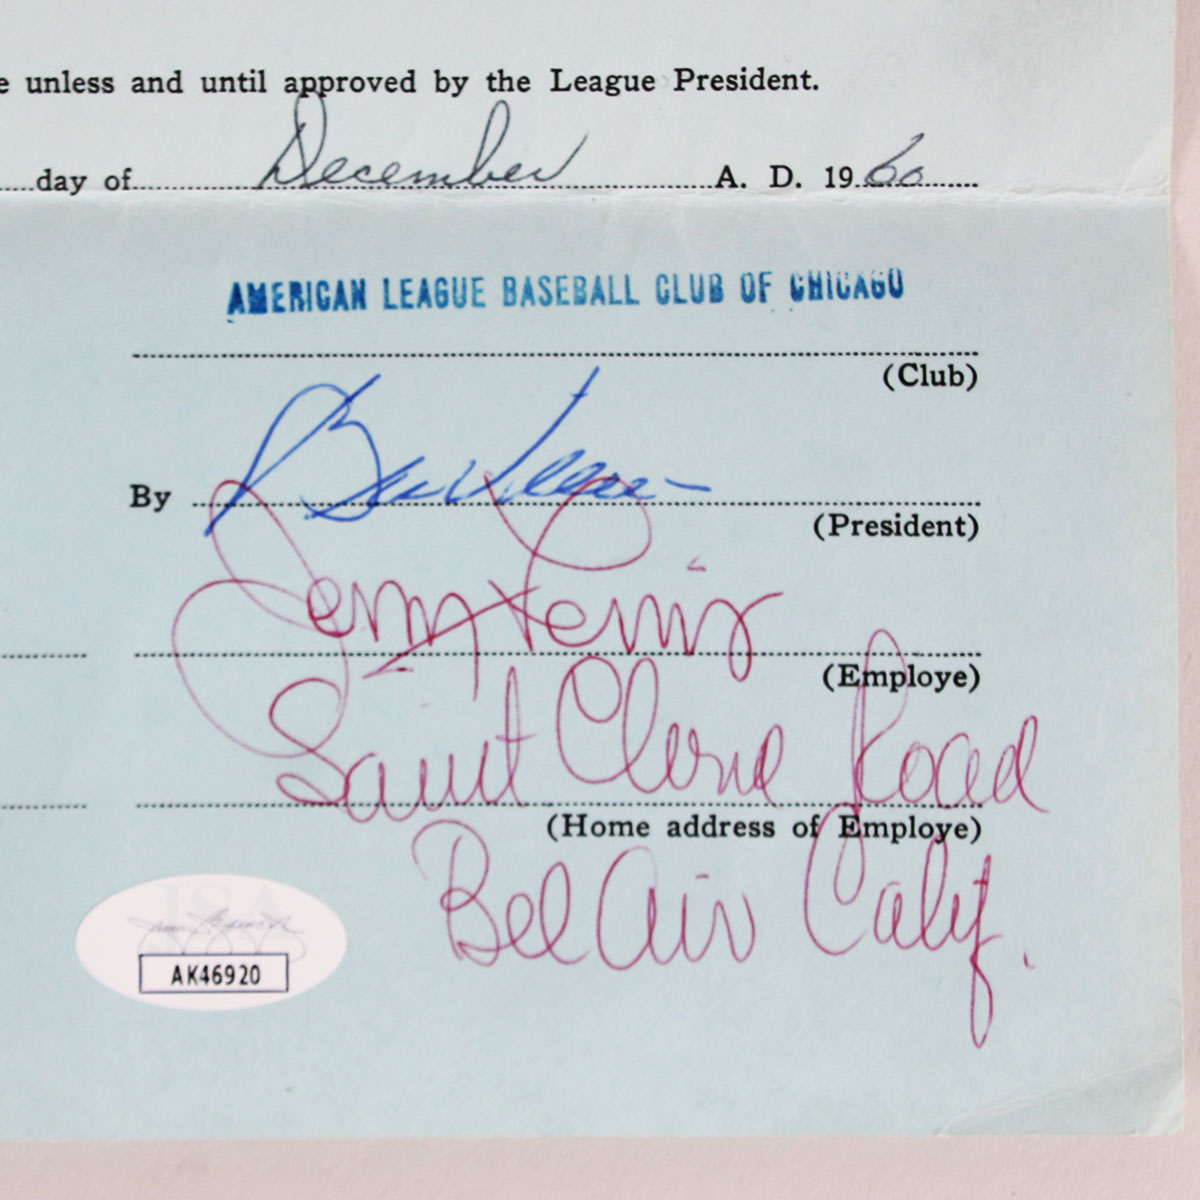 e unless and until approved by the League President.
day of December A. D. 1960
AMERICAN LEAGUE BASEBALL CLUB OF CHICAGO
(Club)
By Bill Veeck
(President)
Jerry Lewis
(Employe)
Saint Cloud Road
(Home address of Employe)
Bel Air Calif.
JSA
AK46920